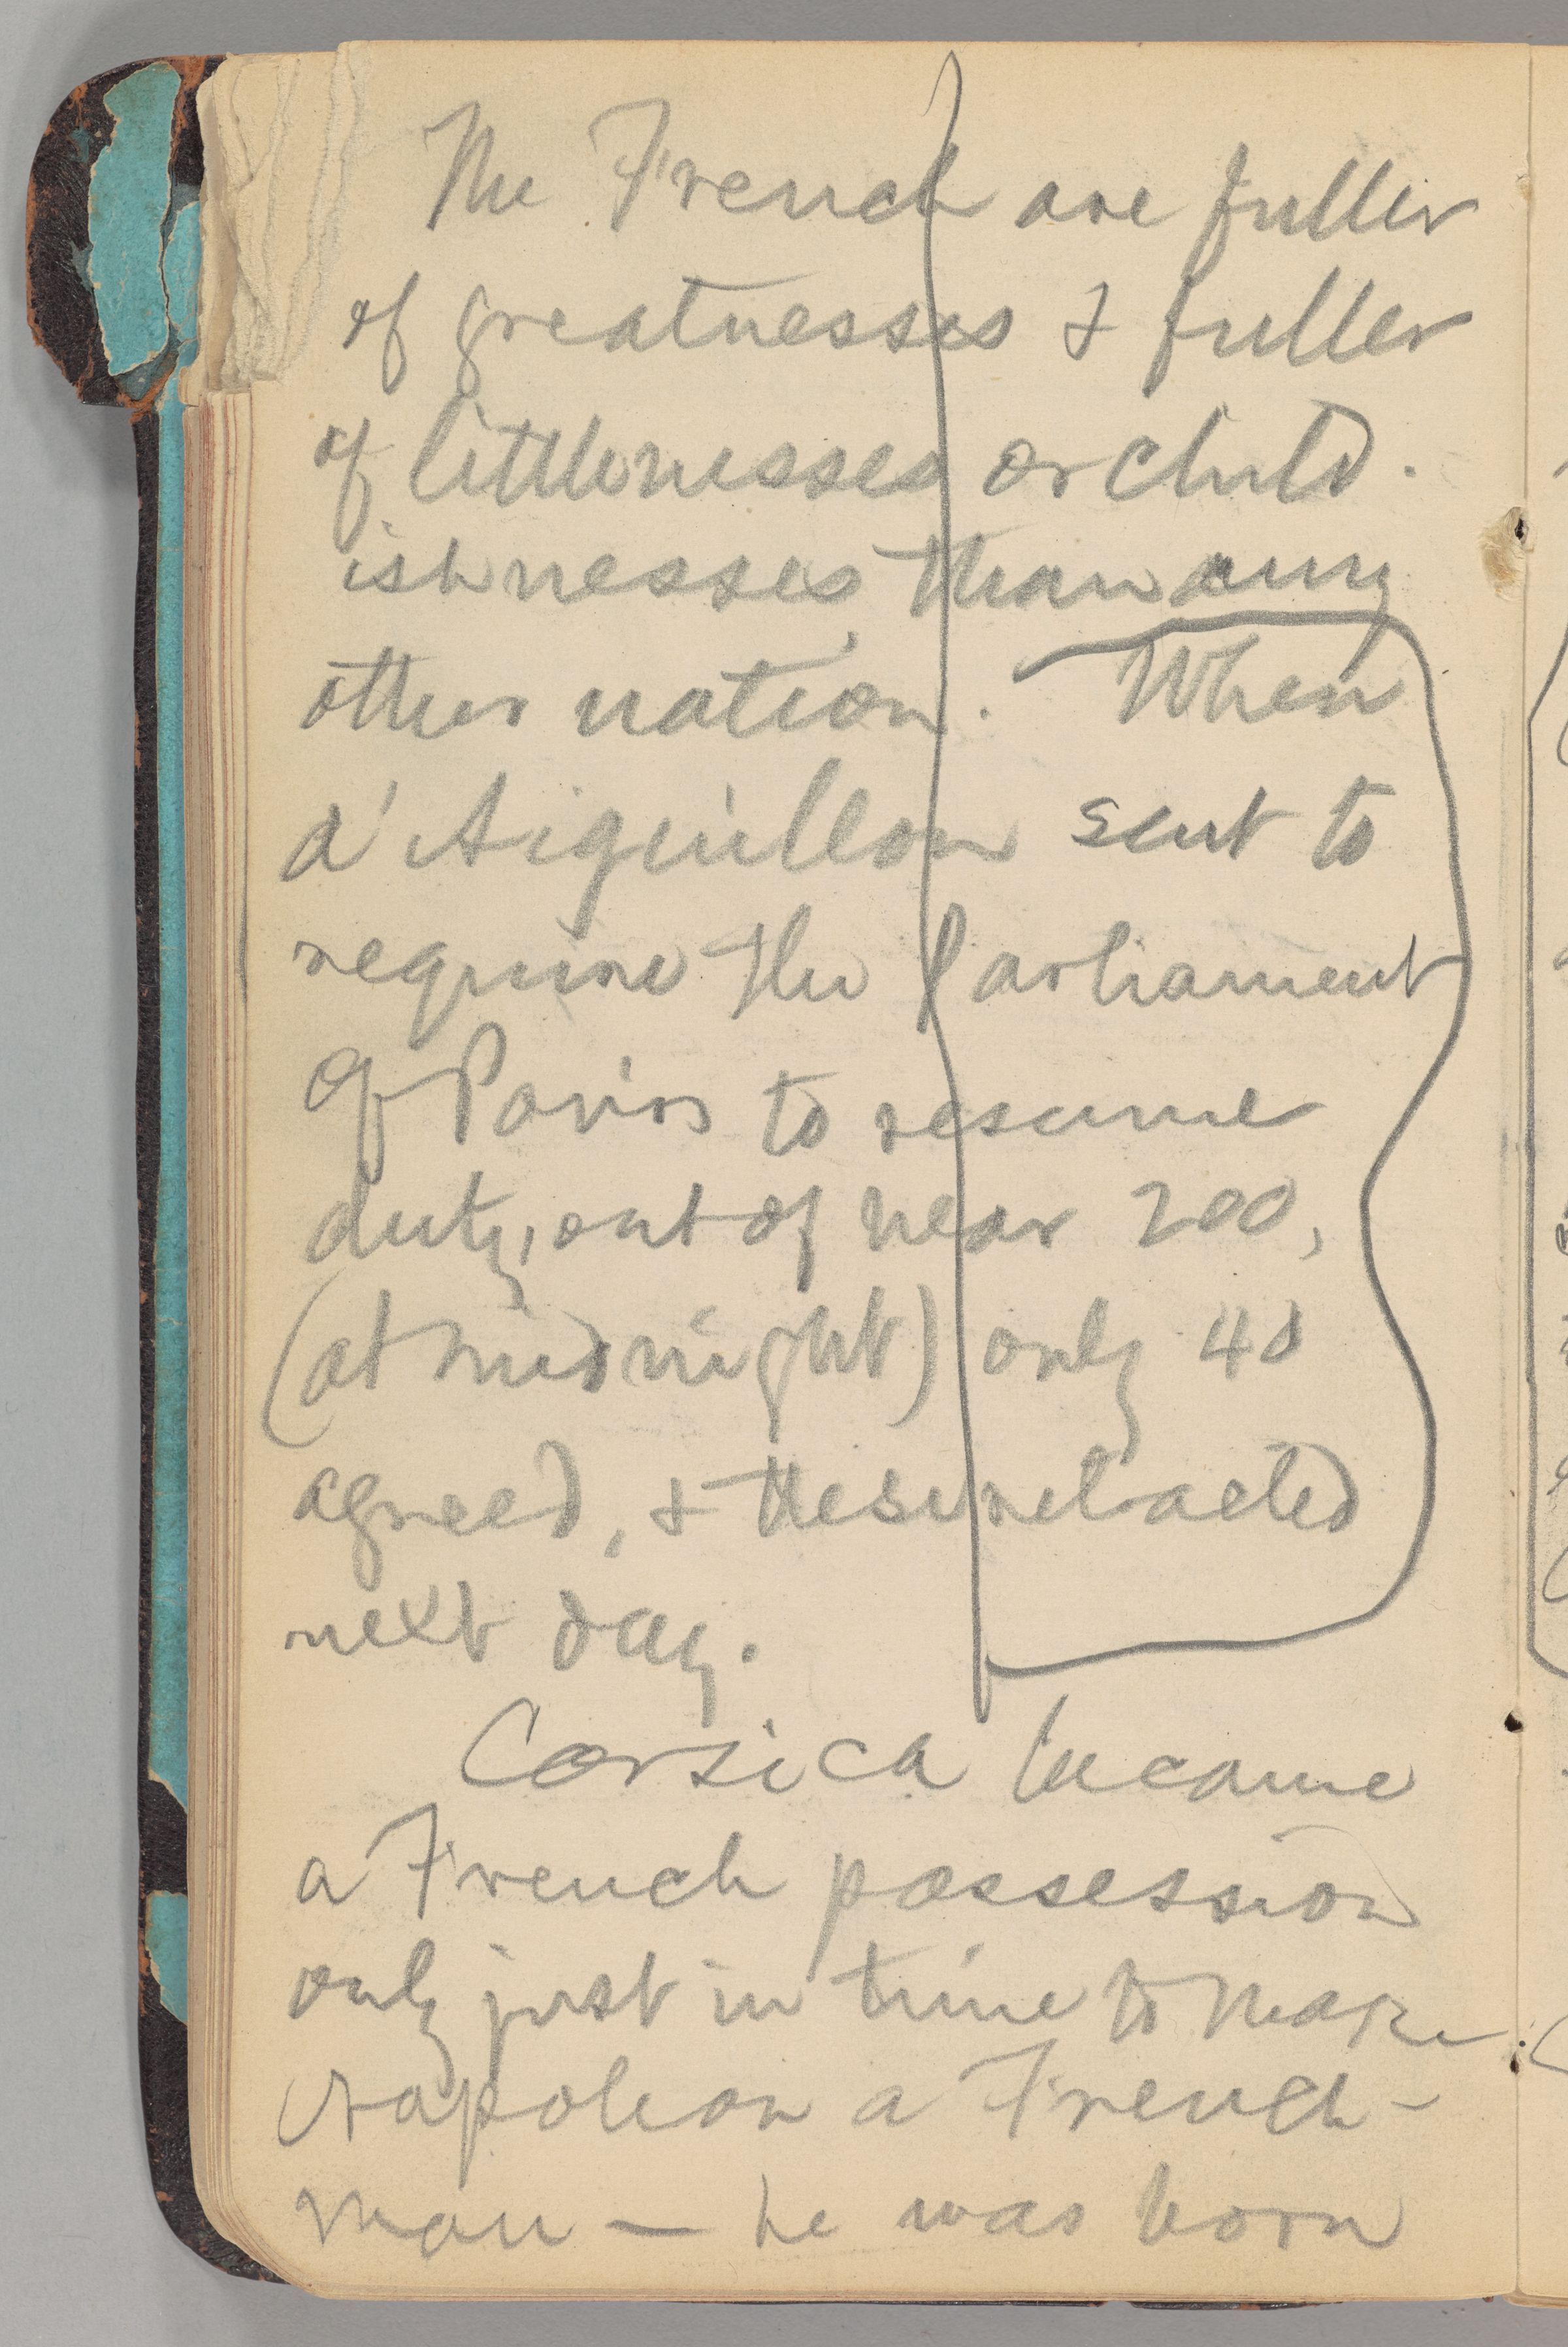 The French are fuller
of greatnesses & fuller
of littlenesses or child-
ishnesses, than any
other nation. When
d'Aiguillon sent to
require the Parliament
of Paris to resume
duty, out of near 200,
(at midnight) only 40
agreed, & these retracted
next day.
Corsica became
a French possession
only just in time to make
Napoleon a French-
man — he was born